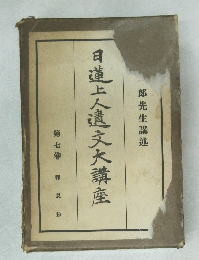 郎先生講述
日蓮上人遺文大講座
第七巻